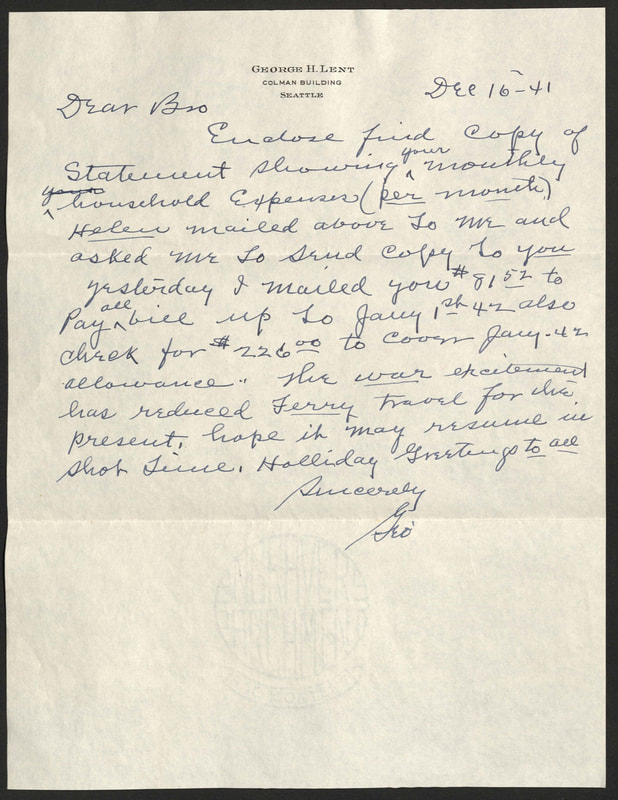 GEORGE H. LENT
COLMAN BUILDING
SEATTLE
Dec 16-41
Dear Bro
Enclose find Copy of
Statement showing your monthly
household Expenses (per month)
Helen mailed above to me and
asked me to send copy to you
yesterday I mailed you $81 52 to
Pay all bill up to Jany 1st 42 also
check for $226 00 to cover Jany-42
allowance. The war excitement
has reduced Ferry travel for the
present, hope it may resume in
shot time. Holliday Greetings to all
Sincerely
Geo